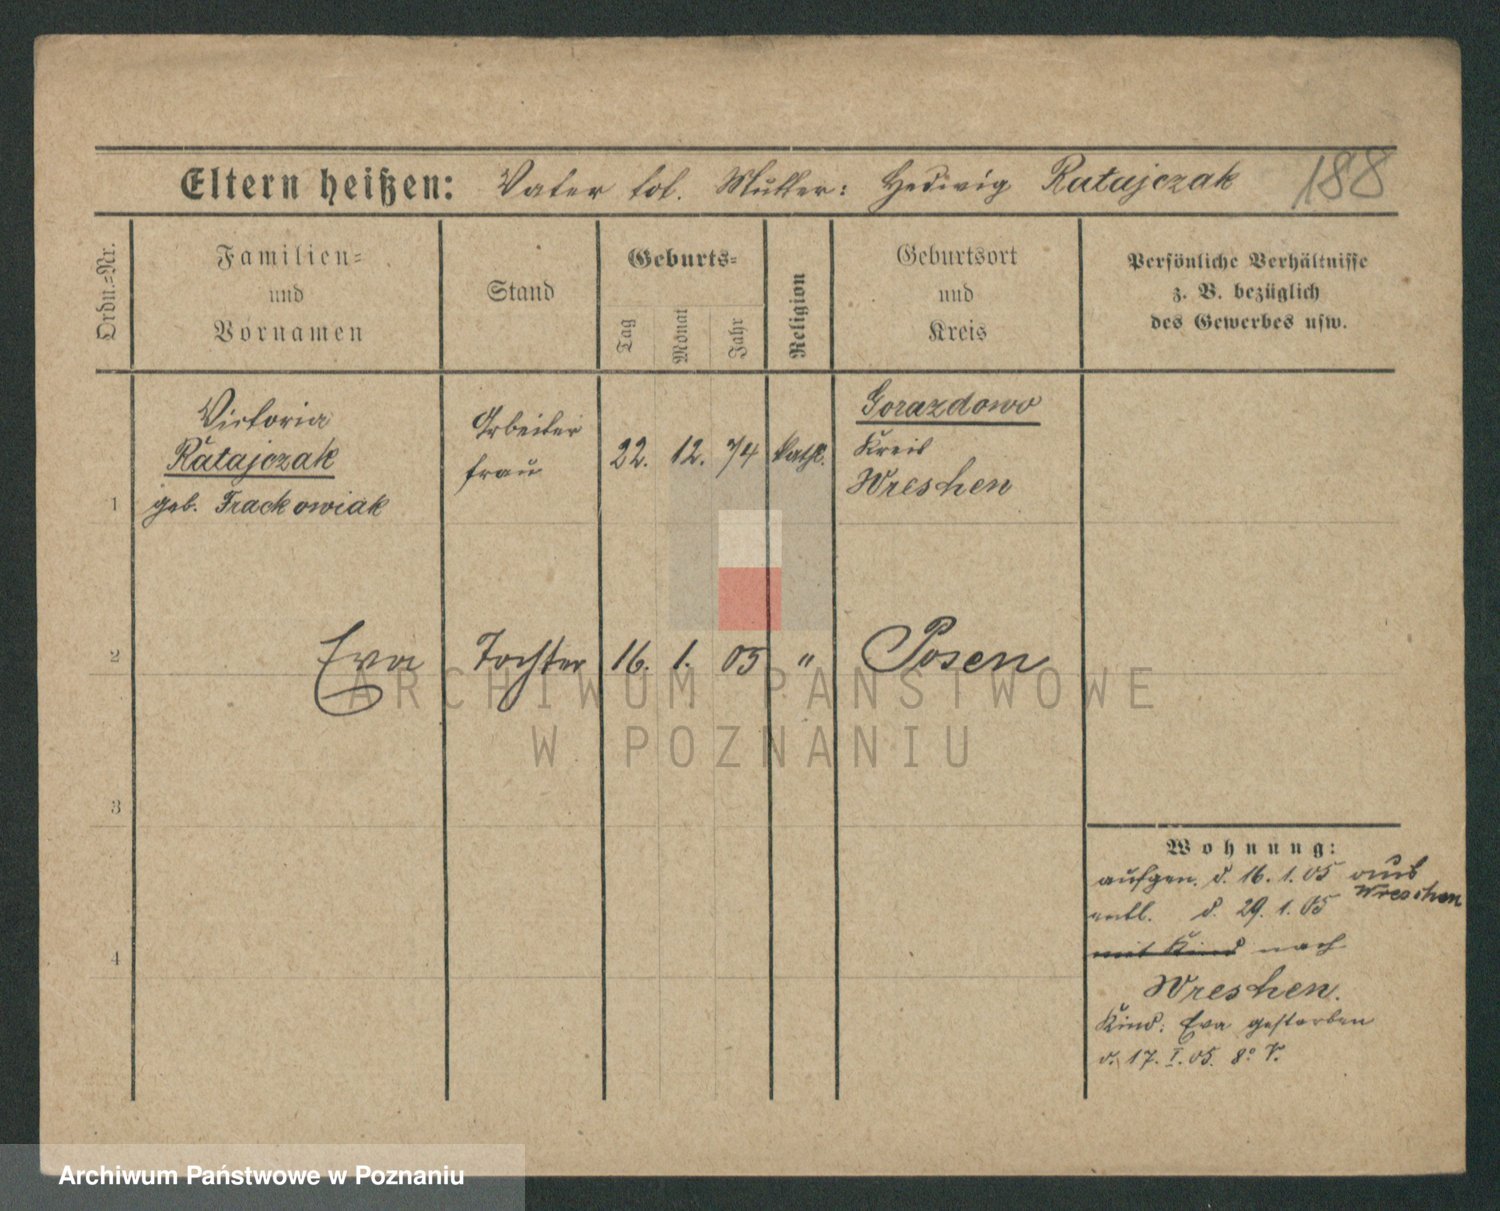 Eltern heißen: Vater tot. Mutter: Hedwig Ratajczak 188
Ordn.=Nr.
Familien=
und
Vornamen
Stand
Geburts=
Tag
Monat
Jahr
Religion
Geburtsort
und
Kreis
Persönliche Verhältnisse
z. B. bezüglich
des Gewerbes usw.
1
Victoria
Ratajczak
geb. Frackowiak
Arbeiter
frau
22. 12. 74 kath.
Gorazdowo
Kreis
Wreshen
2 Eva Tochter 16. 1. 05 " Posen
3
4
Wohnung:
aufgen. d. 16. 1. 05 aus
Wreschen
entl. d. 29. 1. 05
mit Kind nach
Wreshen.
Kind: Eva gestorben
d. 17. I. 05. 8° V.
ARCHIWUM PAŃSTWOWE
W POZNANIU
Archiwum Państwowe w Poznaniu